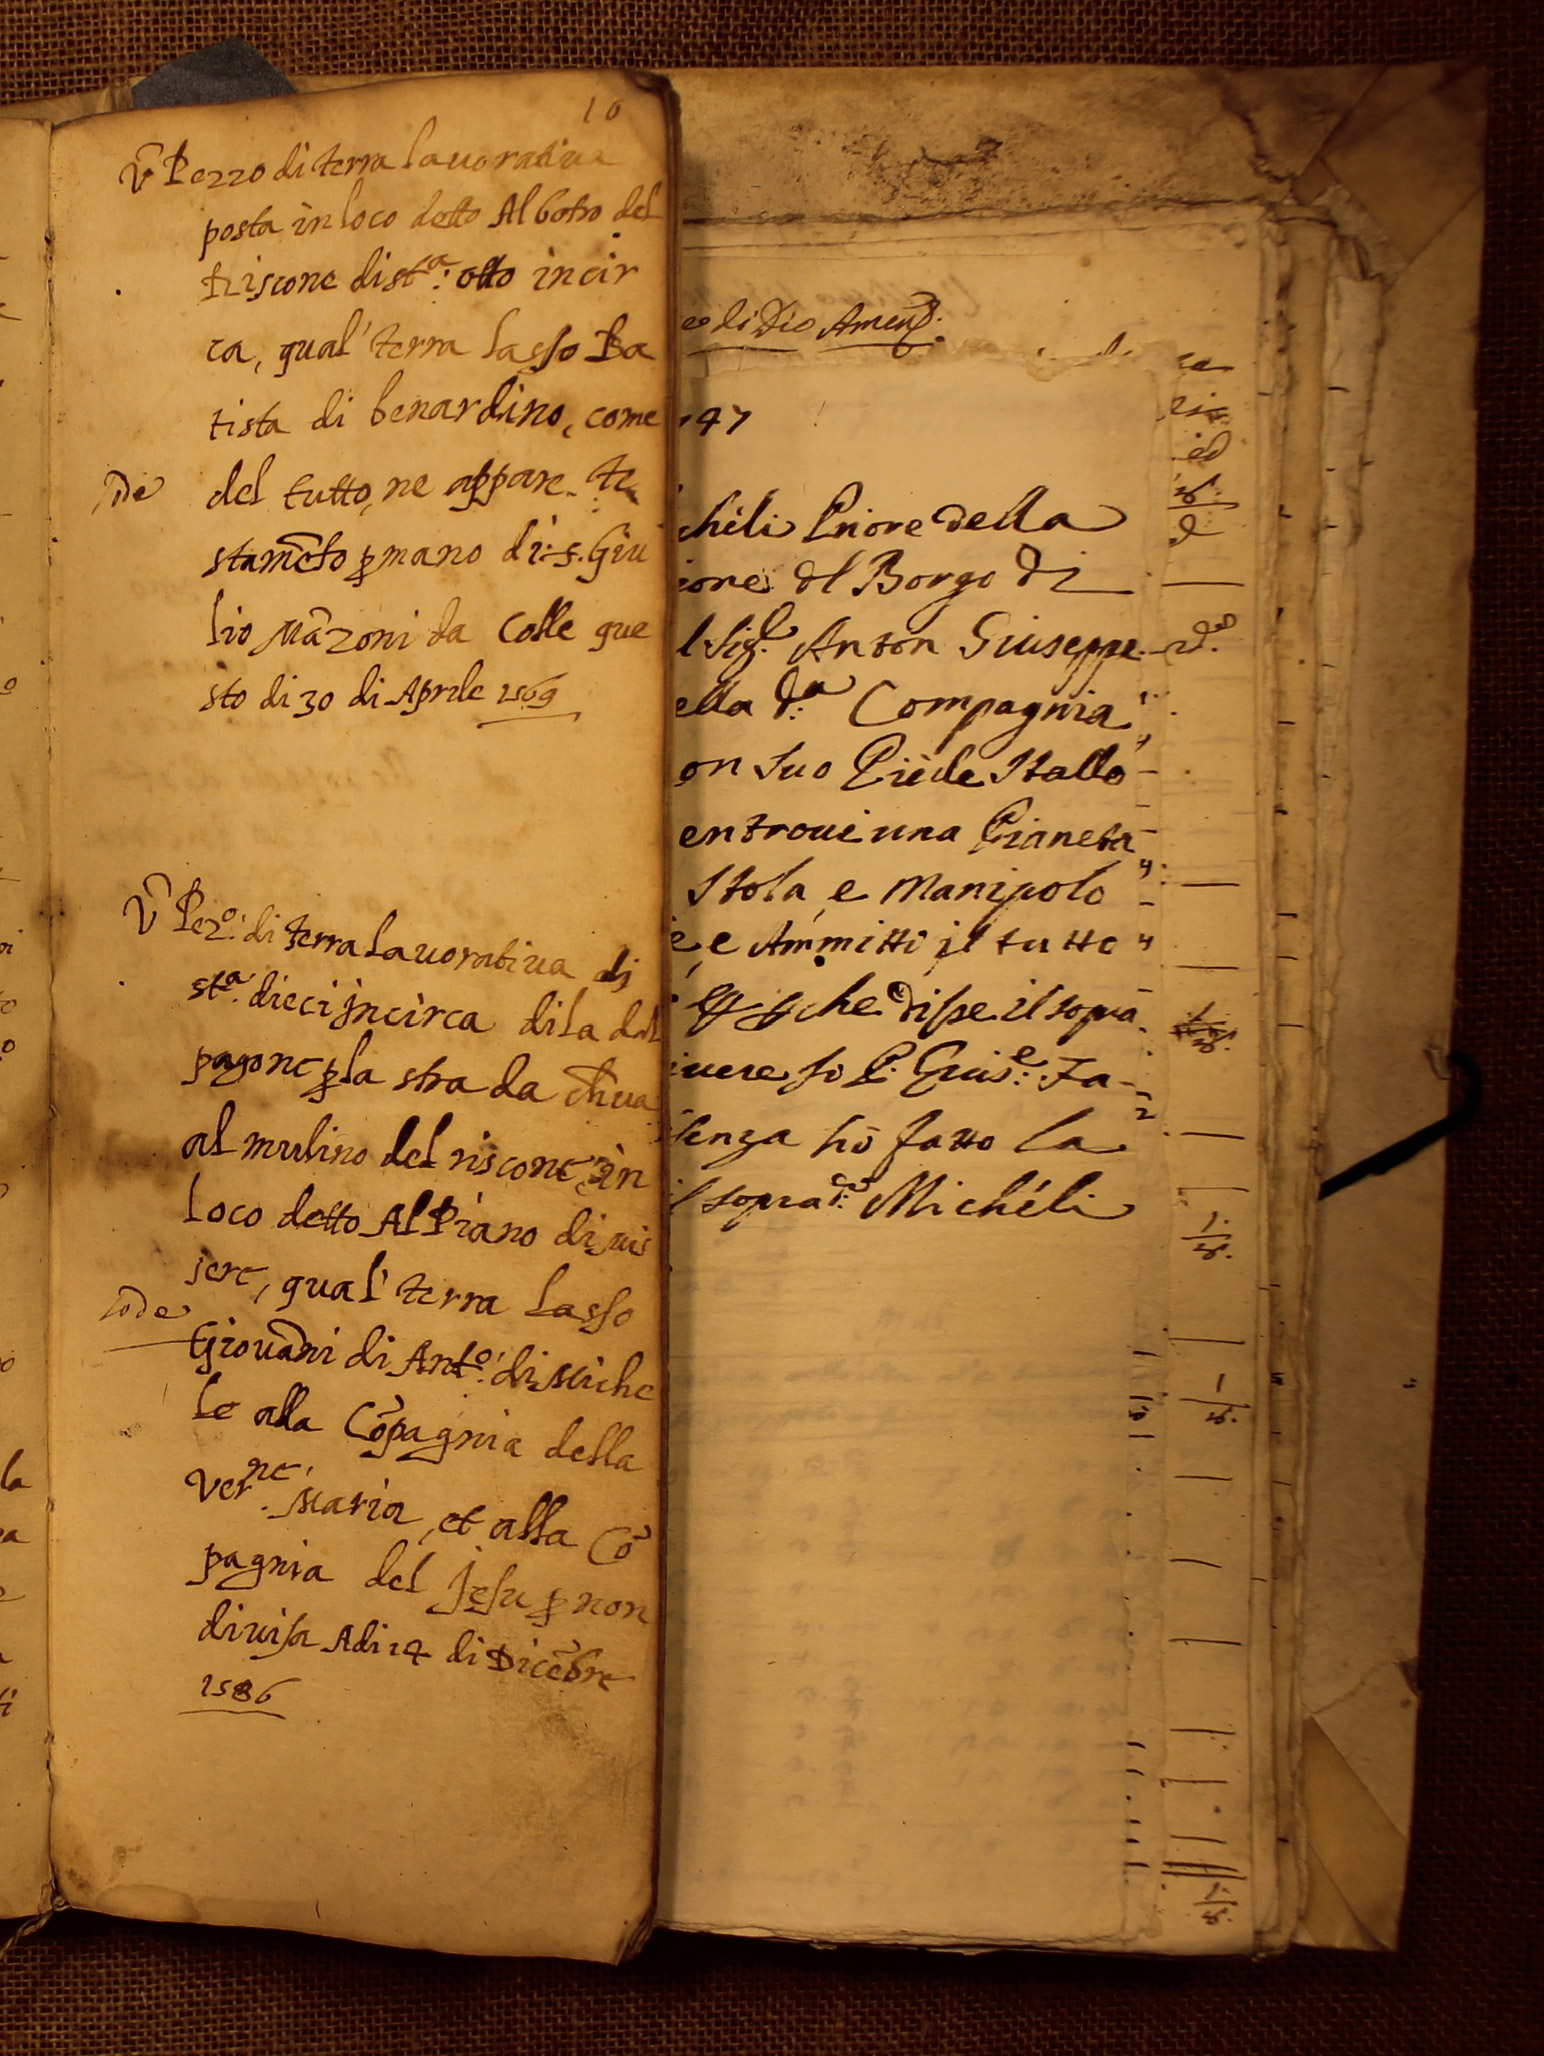 10
Ũ Pezzo di terra lauoratiua
posta in loco detto Al botro del
Riscone di stª: otto incir
ca, qual' terra lasso Ba
tista di benardino, come
del tutto, ne appare te
stamẽto ꝑ mano di: s. Giu
lio Mãzoni da Colle que
sto di 30 di Aprile 1569
Ũ Pezº: di terra lauoratiua di
stª: dieci incirca di la dal
pagone ꝑ la stra da ch̃ ua
al mulino del riscone, in
loco detto Al Piano di uis
sere, qual' terra lasso
Giouãni di Antº: di Miche
le alla Cõpagnia della
Verne: Maria, et alla Cõ
pagnia del Jesu ꝑ non
diuisa Adi 14 di Dicẽbre
1586
di Dio Amen
47
cheli Priore della
ione dl Borgo di
l Sig.e Anton Giuseppe
ella d.a Compagnia
on suo Piede Stallo
entroui una Pianeta
Stola, e Manipolo
e Ammitti il tutto
che disse il sopra
iuere Io P. Gius.e: Fa
senza hò fatto la
l soprad.: Michéli